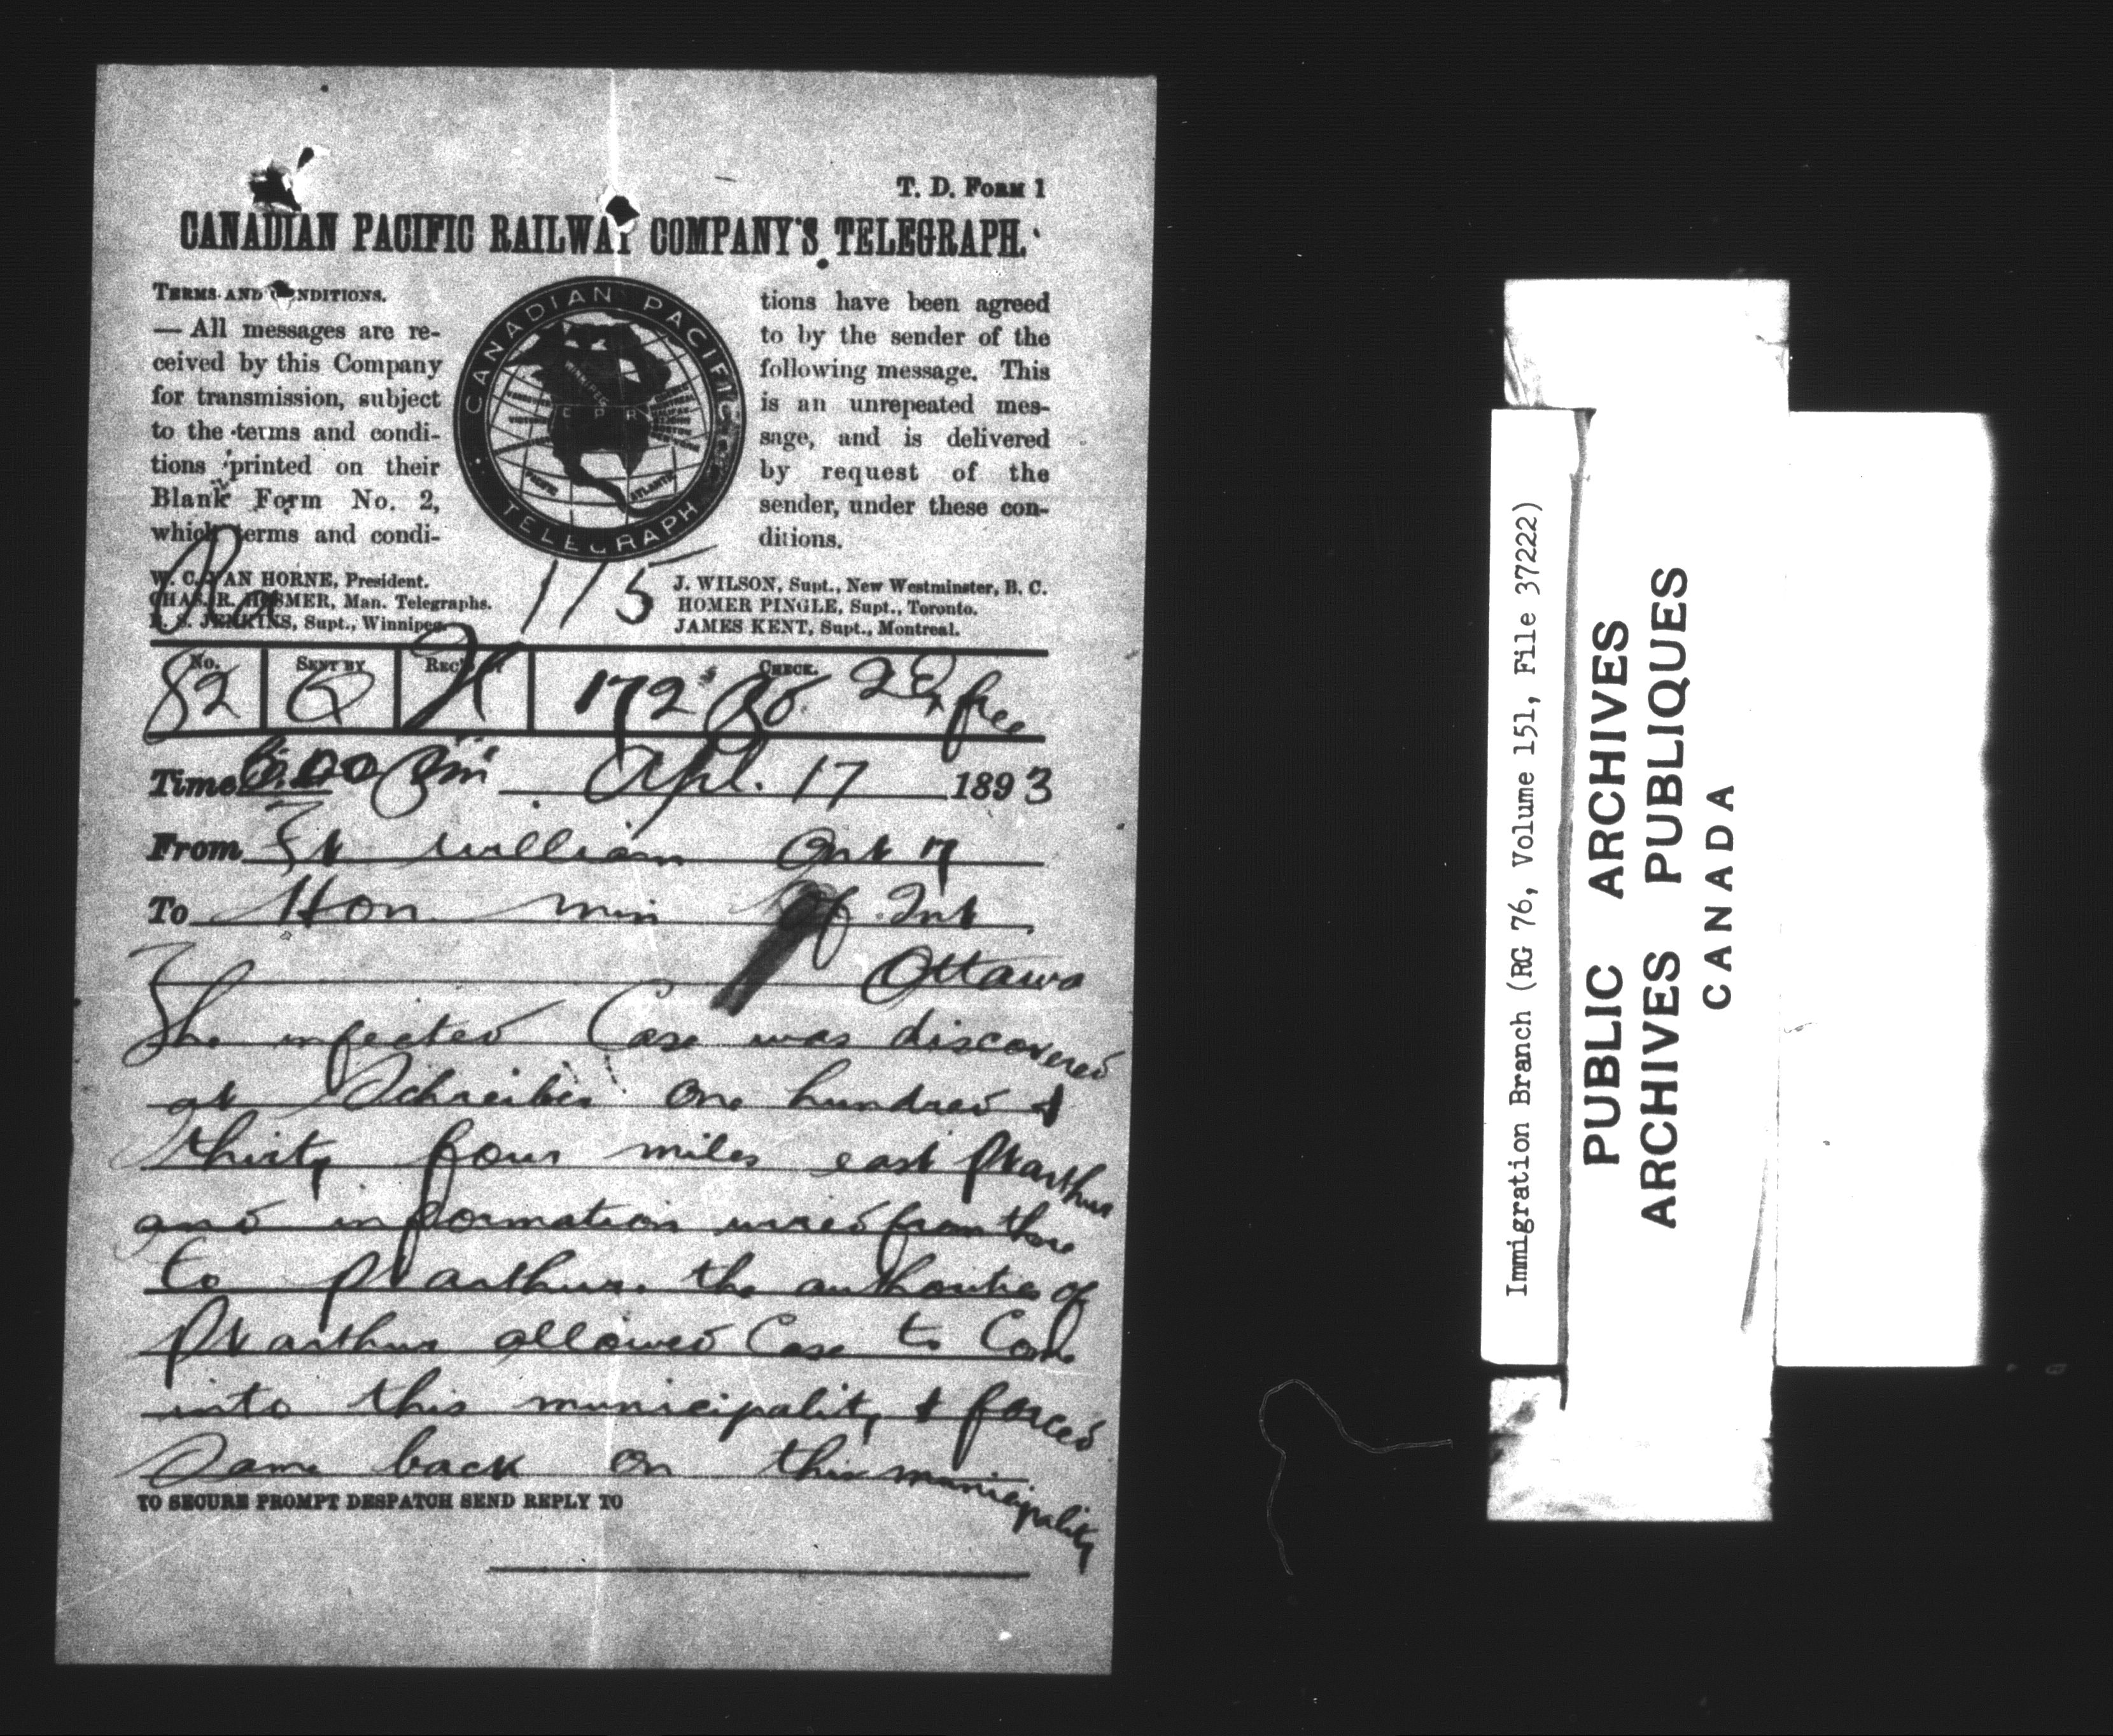 T. D. FORM 1
CANADIAN PACIFIC RAILWAY COMPANY'S TELEGRAPH.
TERMS AND CONDITIONS.
— All messages are re-
ceived by this Company
for transmission, subject
to the terms and condi-
tions printed on their
Blank Form No. 2,
which terms and condi-
CANADIAN PACIFIC
WINNIPEG
C P R
PACIFIC
ATLANTIC
TELEGRAPH
tions have been agreed
to by the sender of the
following message. This
is an unrepeated mes-
sage, and is delivered
by request of the
sender, under these con-
ditions.
115
W. C. VAN HORNE, President.
CHAS. R. HOSMER, Man. Telegraphs.
B. S. JENKINS, Supt., Winnipeg.
J. WILSON, Supt., New Westminster, B. C.
HOMER PINGLE, Supt., Toronto.
JAMES KENT, Supt., Montreal.
No. SENT BY REC'D BY CHECK.
82 172 free
Time Apl. 17 1893
From Ft William Ont 17
To Hon min of Int
Ottawa
The infected Case was discovered
at Schreiber one hundred &
thirty four miles east Pt arthur
and information wired from there
to Pt arthur. the authorities of
Pt arthur allowed Case to Come
into this municipality & forced
Same back on this municipality
TO SECURE PROMPT DESPATCH SEND REPLY TO
Immigration Branch (RG 76, Volume 151, File 37222)
PUBLIC ARCHIVES
ARCHIVES PUBLIQUES
CANADA